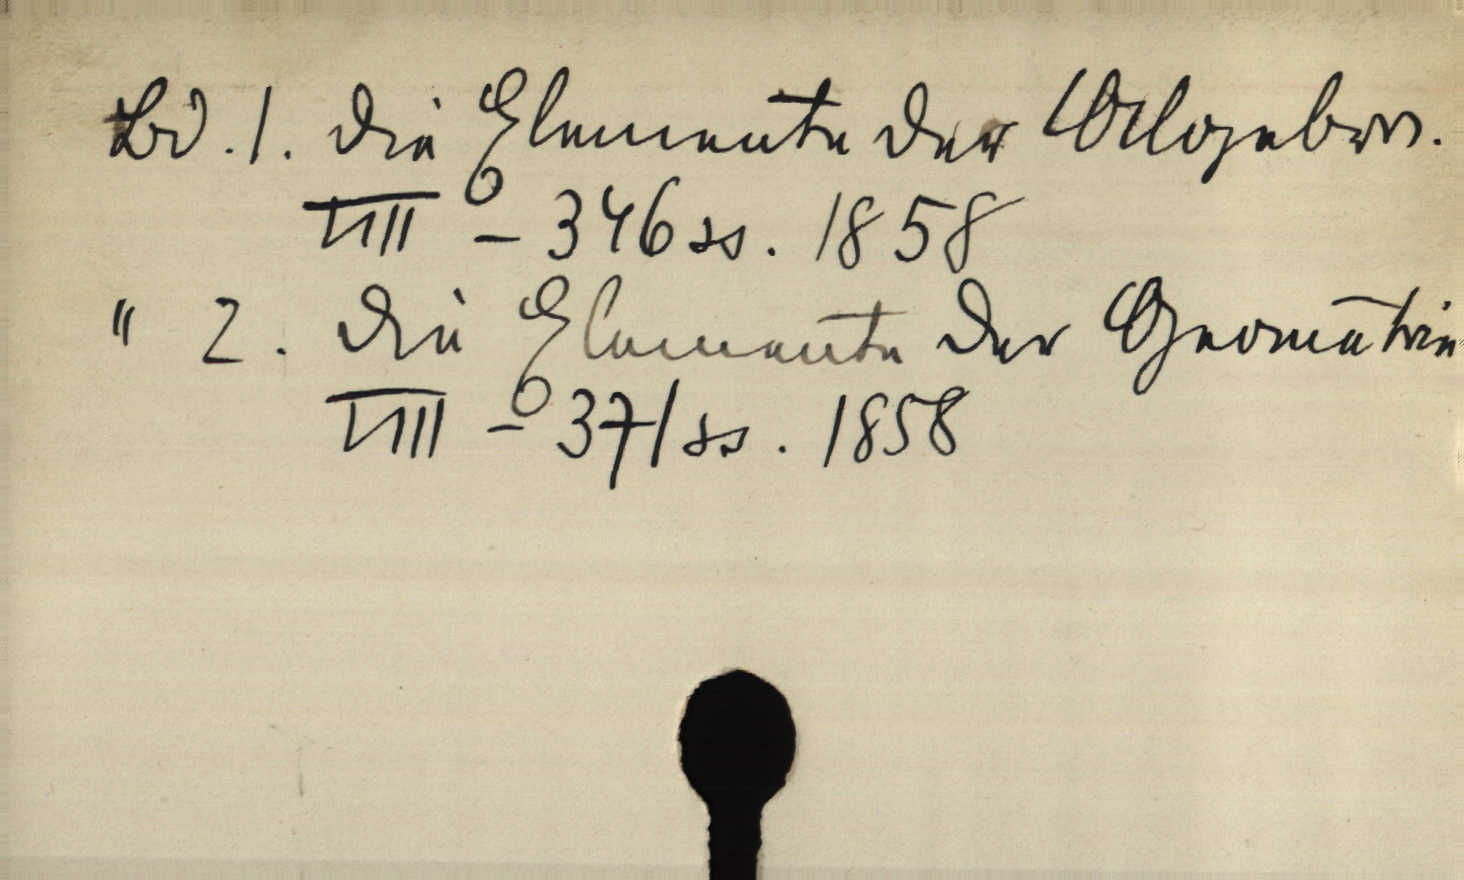 Bd. 1. Die Elemente der Algebra.
VIII – 346 ss. 1858
" 2. Die Elemente der Geometrie
VIII – 371 ss. 1858